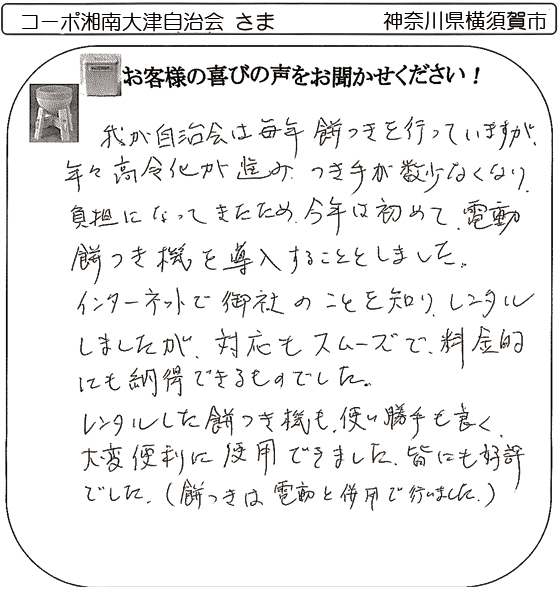 コーポ湘南大津自治会 さま 神奈川県横須賀市
お客様の喜びの声をお聞かせください!
我が自治会は毎年餅つきを行っていますが、
年々高令化が進み、つき手が数少なくなり、
負担になってきたため、今年は初めて、電動
餅つき機を導入することとしました。
インターネットで御社のことを知り、レンタル
しましたが、対応もスムーズで、料金的
にも納得できるものでした。
レンタルした餅つき機も、使い勝手も良く、
大変便利に使用できました。皆にも好評
でした。(餅つきは電動と併用で行いました。)